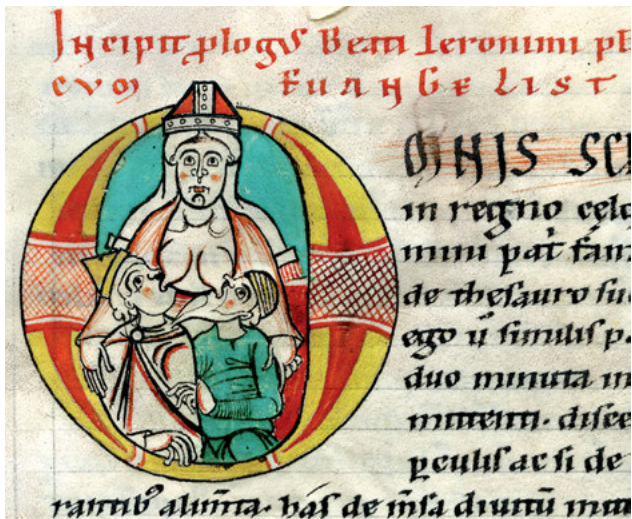 Incipit plogus Beati Ieronimi p
Euangelist
OMNIS SC
in regno celo
mini pat fam
de thesauro su
ego u similis p
duo minuta in
mittenti. disce
pculis ac si de
alimta. has de msa diuitu